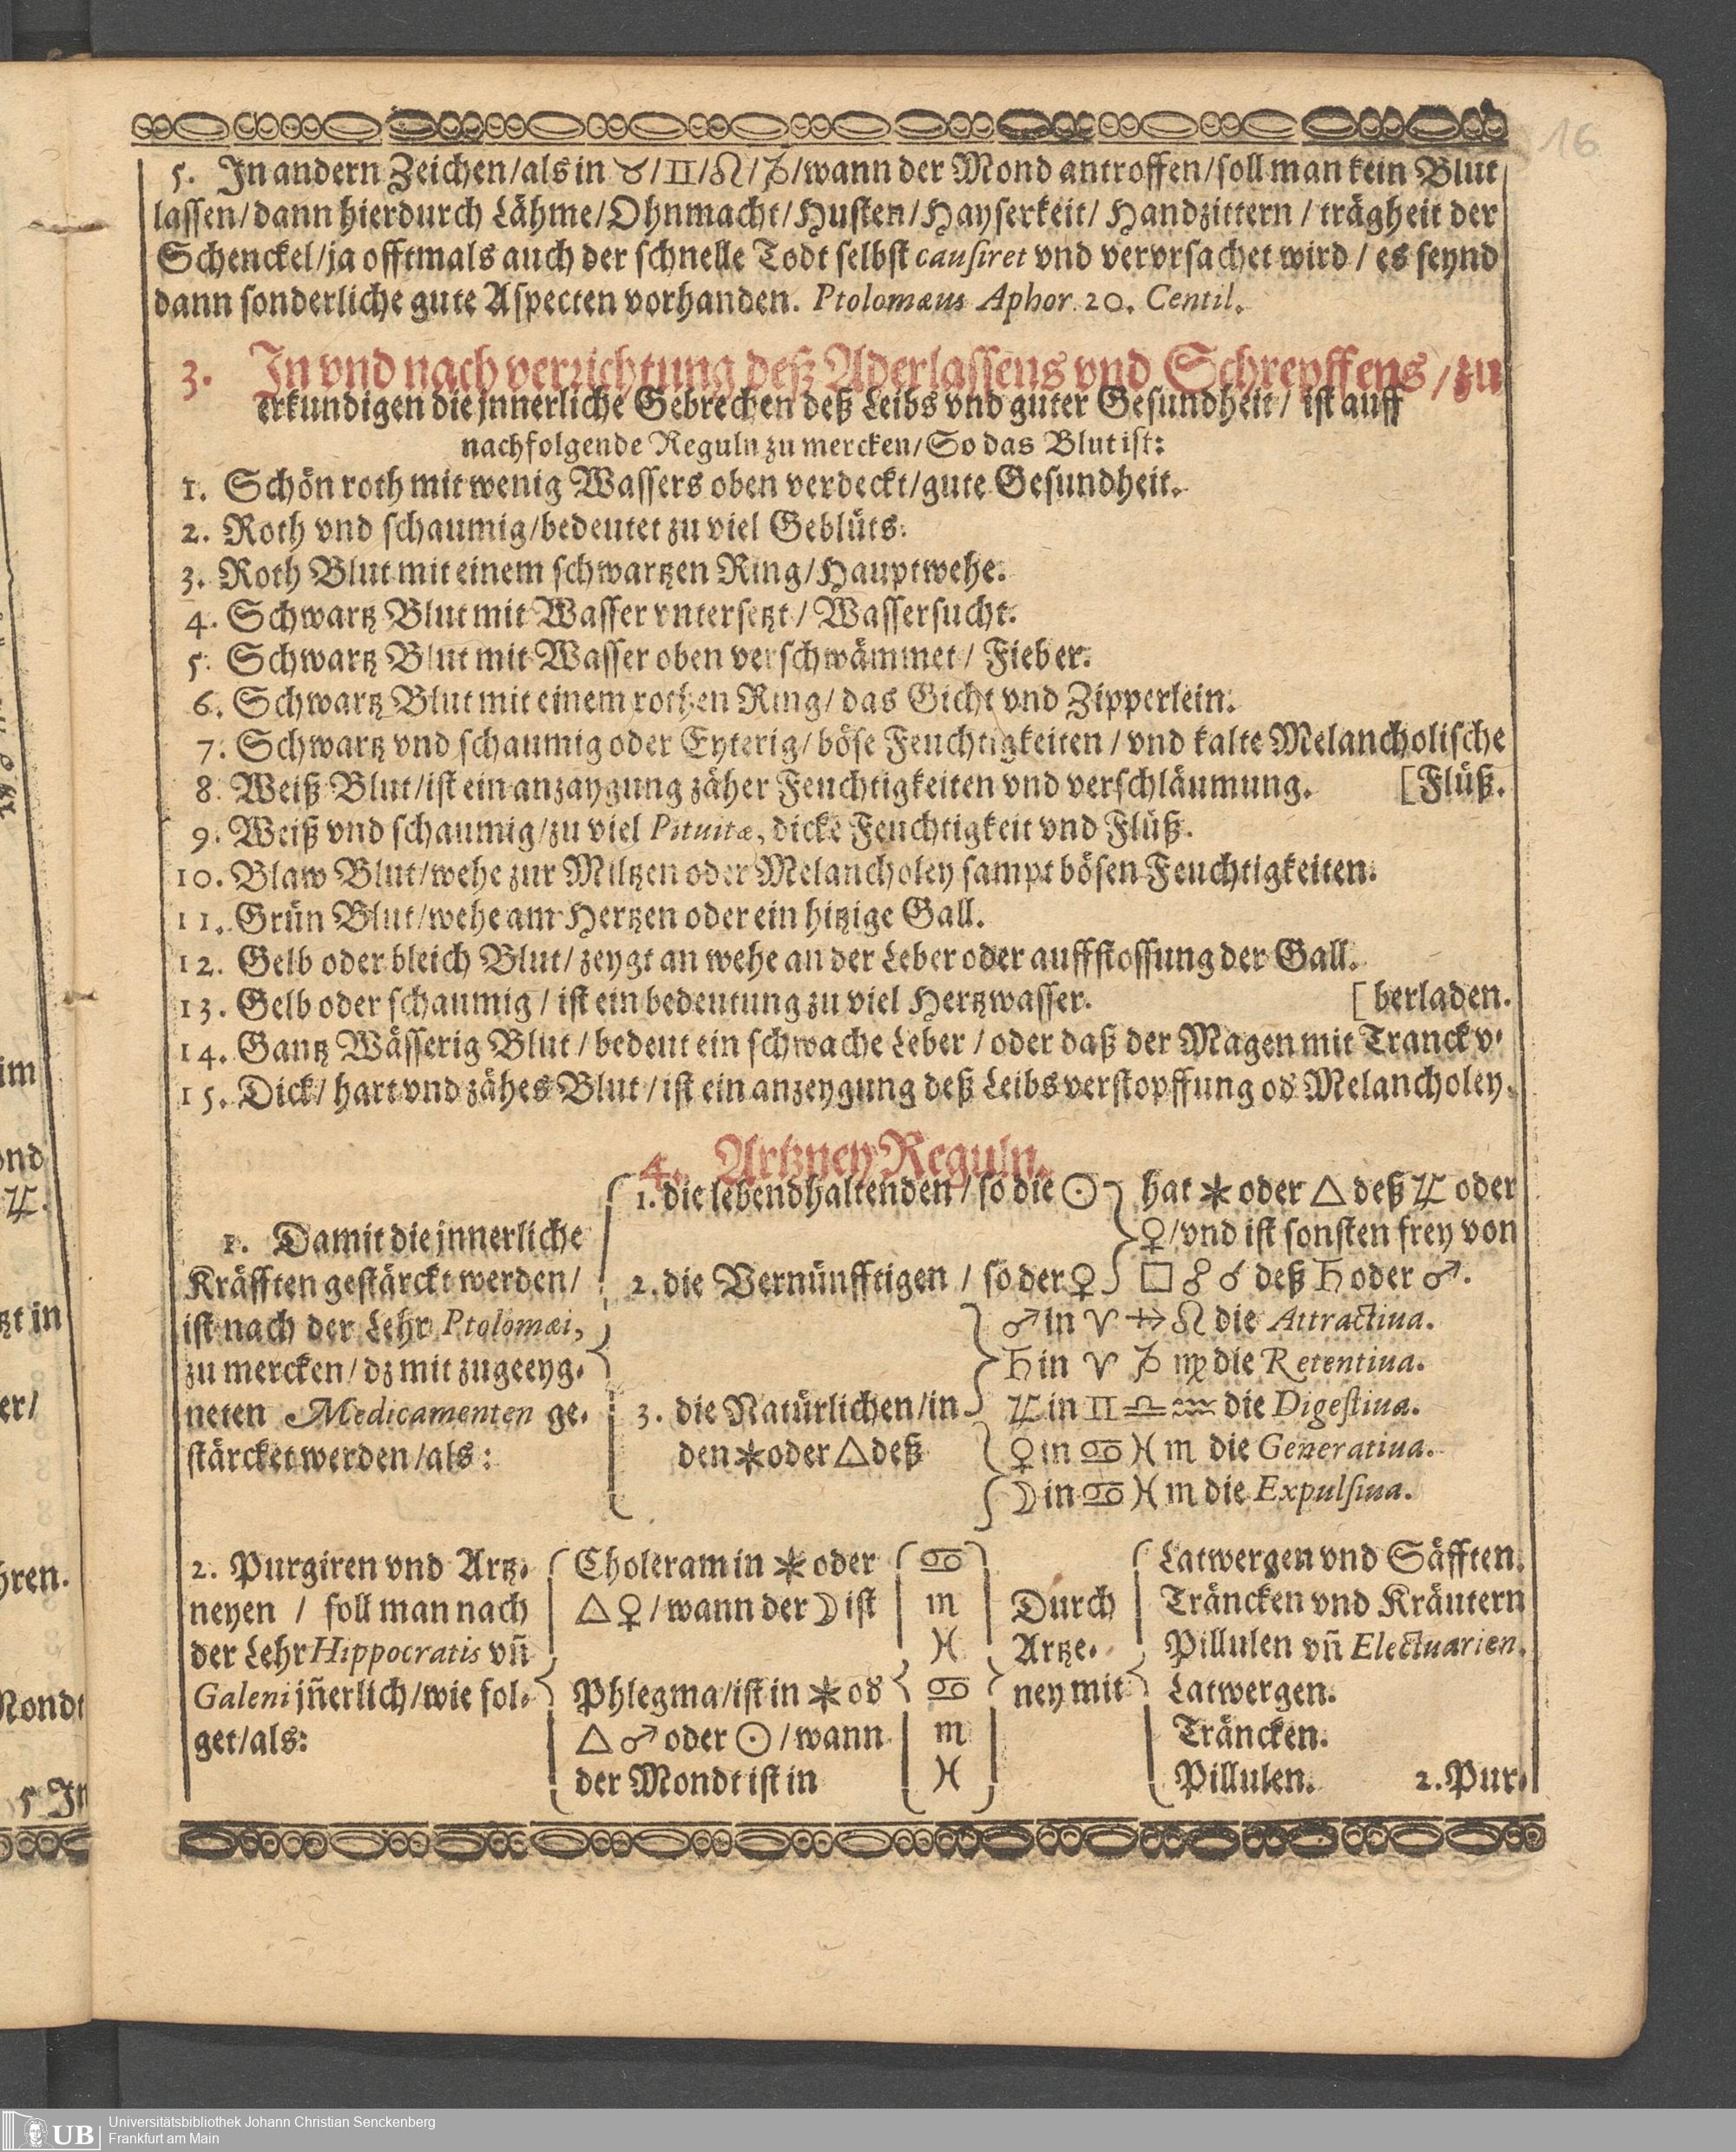 16
5. In andern Zeichen/als in ♉/♊/♌/♑/wann der Mond antroffen/soll man kein Blut
lassen/dann hierdurch Lähme/Ohnmacht/Husten/Hayserkeit/ Handzittern / trägheit der
Schenckel/ja offtmals auch der schnelle Todt selbst causiret vnd vervrsachet wird / es seynd
dann sonderliche gute Aspecten vorhanden. Ptolomæus Aphor. 20. Centil.
3. In vnd nach verrichtung deß Aderlassens vnd Schrepffens / zu
erkundigen die jnnerliche Gebrechen deß Leibs vnd guter Gesundheit / ist auff
nachfolgende Reguln zu mercken/So das Blut ist:
1. Schön roth mit wenig Wassers oben verdeckt/gute Gesundheit.
2. Roth vnd schaumig/bedeutet zu viel Geblüts.
3. Roth Blut mit einem schwartzen Ring/Hauptwehe.
4. Schwartz Blut mit Wasser vntersetzt / Wassersucht.
5. Schwartz Blut mit Wasser oben verschwämmet / Fieber.
6. Schwartz Blut mit einem rothen Ring/ das Gicht vnd Zipperlein.
7. Schwartz vnd schaumig oder Eyterig/ böse Feuchtigkeiten / vnd kalte Melancholische
8. Weiß Blut/ist ein anzaygung zäher Feuchtigkeiten vnd verschläumung. [Flüß.
9. Weiß vnd schaumig/zu viel Pituitæ, dicke Feuchtigkeit vnd Flüß.
10. Blaw Blut/wehe zur Miltzen oder Melancholey sampt bösen Feuchtigkeiten.
11. Grün Blut/wehe am Hertzen oder ein hitzige Gall.
12. Gelb oder bleich Blut/ zeygt an wehe an der Leber oder auffstossung der Gall.
13. Gelb oder schaumig / ist ein bedeutung zu viel Hertzwasser. [berladen.
14. Gantz Wässerig Blut / bedeut ein schwache Leber / oder daß der Magen mit Tranck v-
15. Dick/ hart vnd zähes Blut / ist ein anzeygung deß Leibs verstopffung od Melancholey.
4. Artzney Reguln.
1. Damit die jnnerliche
Kräfften gestärckt werden/
ist nach der Lehr Ptolomæi,
zu mercken/ dz mit zugeeyg-
neten Medicamenten ge-
stärcket werden/als:
1. die lebendhaltenden / so die ☉
2. die Vernünfftigen / so der ♀
hat ⚹ oder △ deß ♃ oder
♀/vnd ist sonsten frey von
□ ☍ ☌ deß ♄ oder ♂.
3. die Natürlichen/in
den ⚹ oder △ deß
♂ in ♈ ♐ ♌ die Attractiua.
♄ in ♈ ♑ ♍ die Retentiua.
♃ in ♊ ♎ ♒ die Digestiua.
♀ in ♋ ♓ ♏ die Generatiua.
☽ in ♋ ♓ ♏ die Expulsiua.
2. Purgiren vnd Artz-
neyen / soll man nach
der Lehr Hippocratis vñ
Galeni jñerlich/wie fol-
get/als:
Choleram in ⚹ oder
△ ♀ / wann der ☽ ist
Phlegma/ist in ⚹ od
△ ♂ oder ☉ / wann
der Mondt ist in
♋
♏
♓
♋
♏
♓
Durch
Artze-
ney mit
Latwergen vnd Säfften.
Träncken vnd Kräutern
Pillulen vñ Electuarien.
Latwergen.
Träncken.
Pillulen. 2. Pur-
im
ond
♃.
tzt in
er/
hren.
Mondt
5 In
UB Universitätsbibliothek Johann Christian Senckenberg
Frankfurt am Main